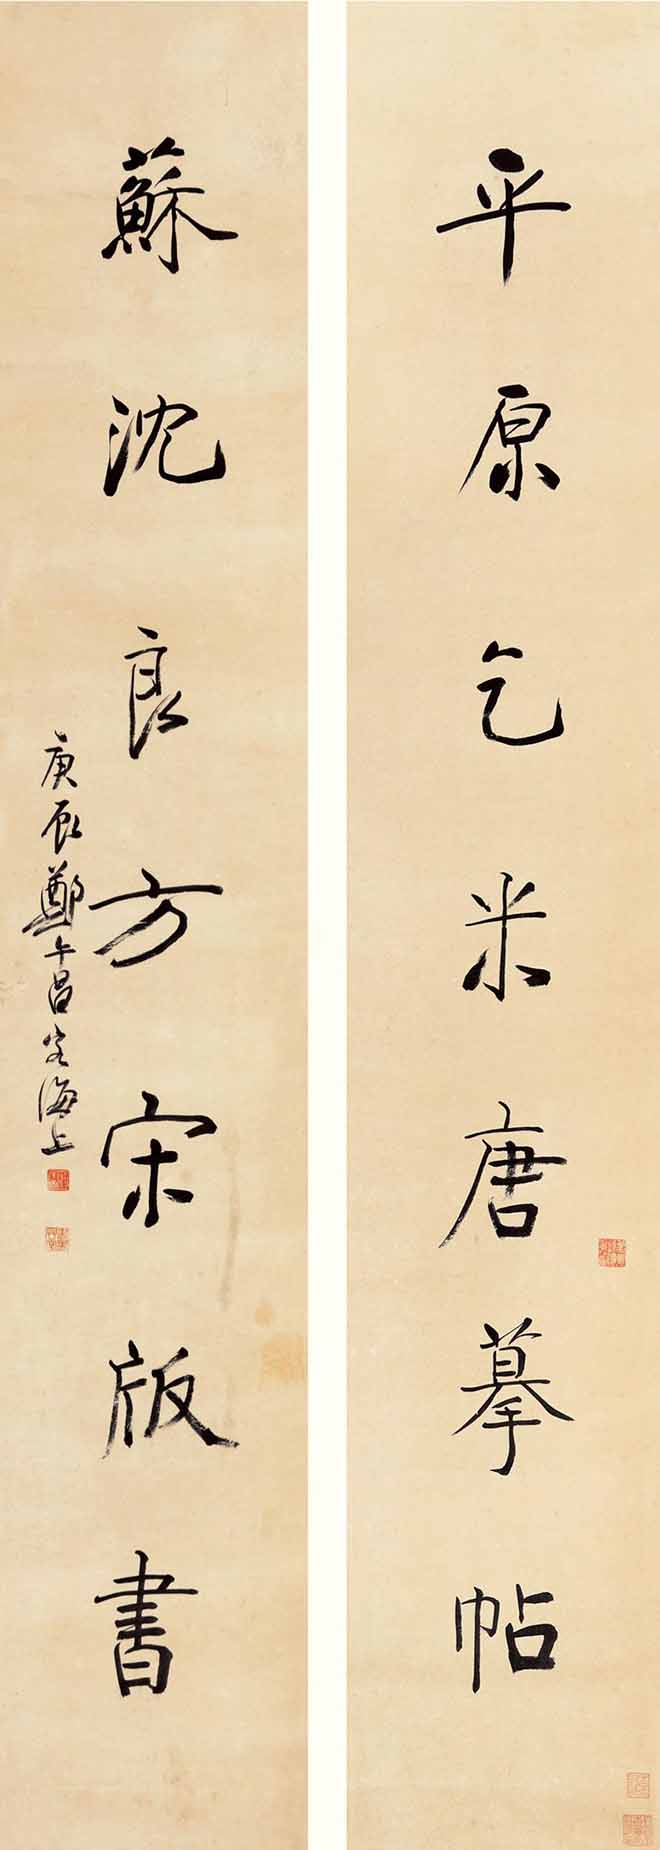 平原乞米唐摹帖
蘇沈良方宋版書
庚辰鄭午昌客海上